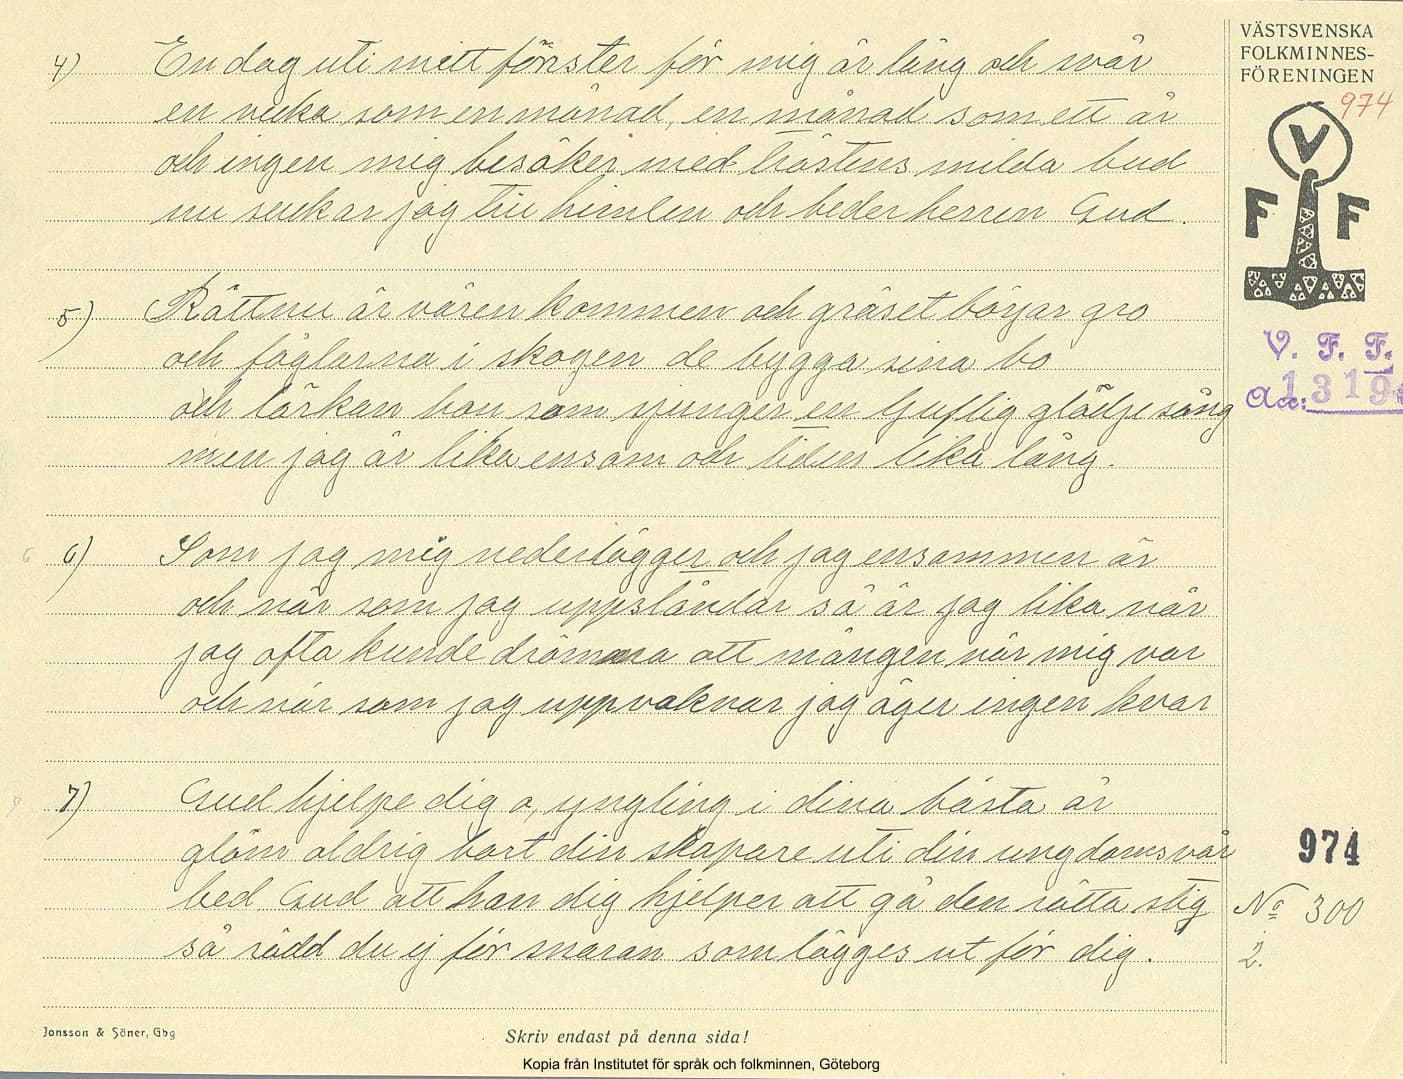 4) En dag uti mitt fönster för mig är lång och svår
en vecka som en månad, en månad som ett år
och ingen mig besöker med tröstens milda bud
nu suckar jag till himlen och beder herren Gud.
5) Rättnu är våren kommen och gräset börjar gro
och foglarna i skogen de bygga sina bo
och lärkan hon som sjunger en ljuflig glädjesång
men jag är lika ensam och tiden lika lång.
6 6) Som jag mig nederlägger och jag ensammen är
och när som jag uppständar så är jag lika när
jag ofta kunde drömma att mången när mig var
och när som jag uppvaknar jag äger ingen kvar
7) Gud hjelpe dig o, yngling i dina bästa år
glöm aldrig bort din skapare uti din ungdomsvår
bed Gud att han dig hjelper att gå den rätta stig
så rädd du ej för snaran som lägges ut för dig.
VÄSTSVENSKA
FOLKMINNES-
FÖRENINGEN
974
V
F F
V. F. F.
Acc: 1319
974
No 300
2.
Jonsson & Söner, Gbg
Skriv endast på denna sida!
Kopia från Institutet för språk och folkminnen, Göteborg